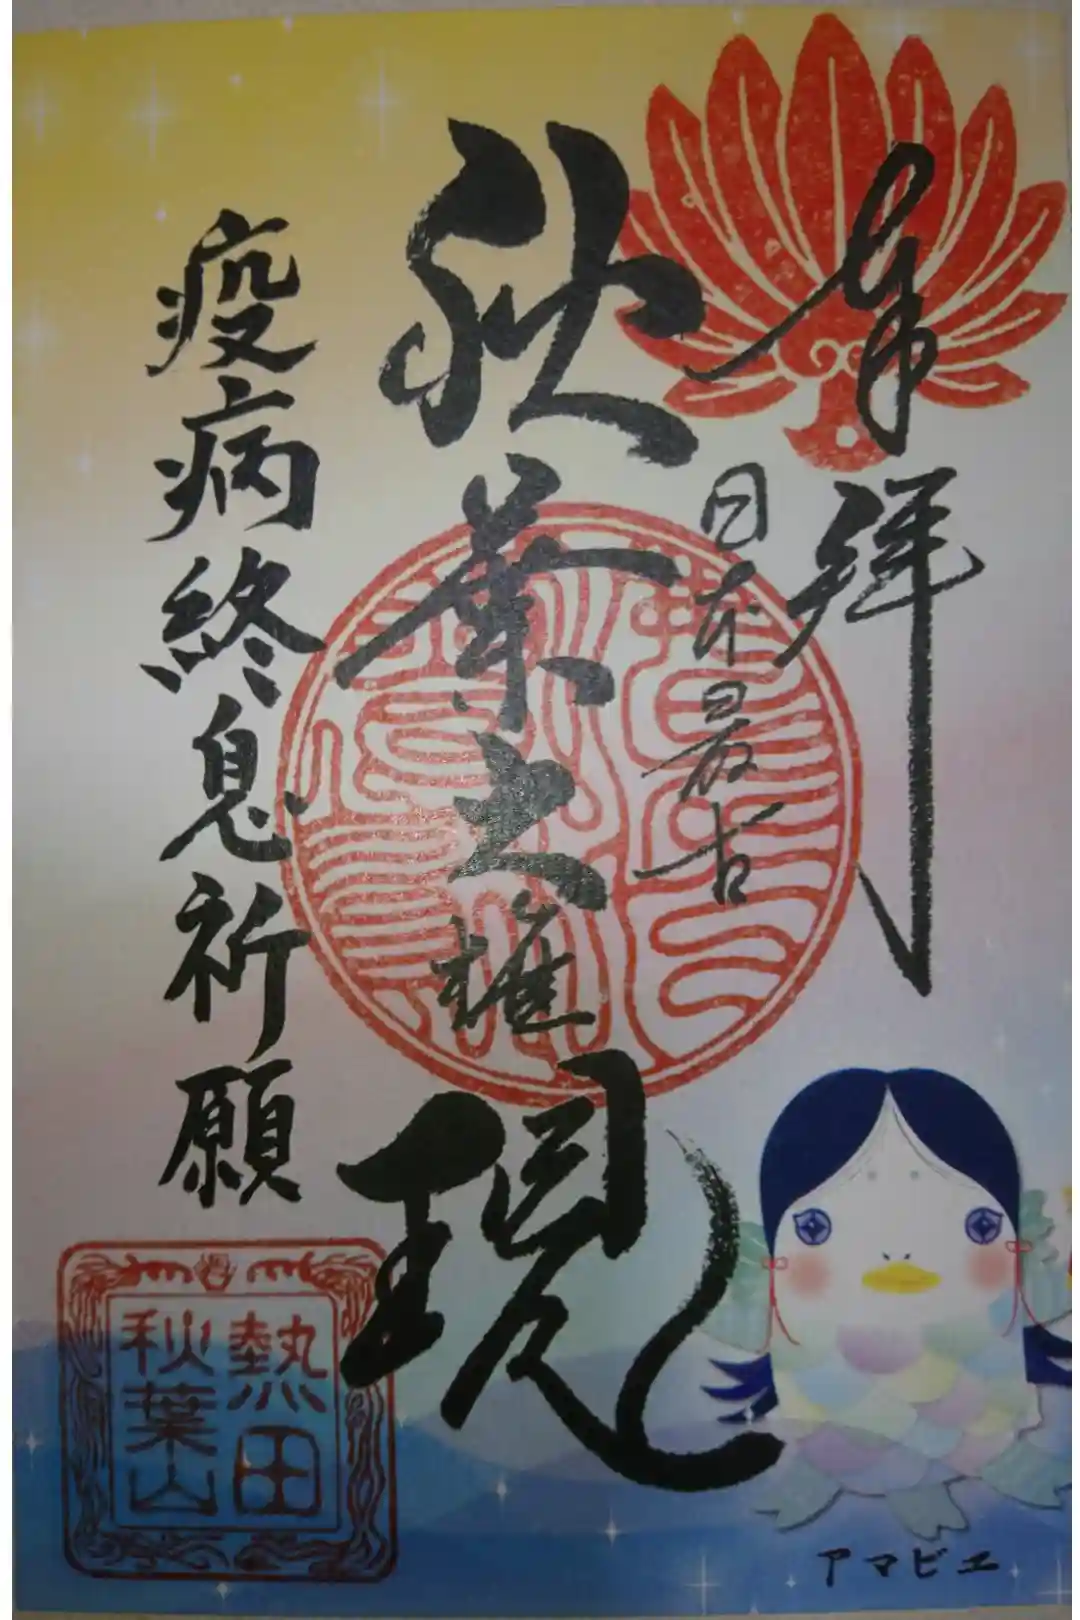 奉拝
日本最古
秋葉大権現
疫病終息祈願
熱田
秋葉山
アマビヱ